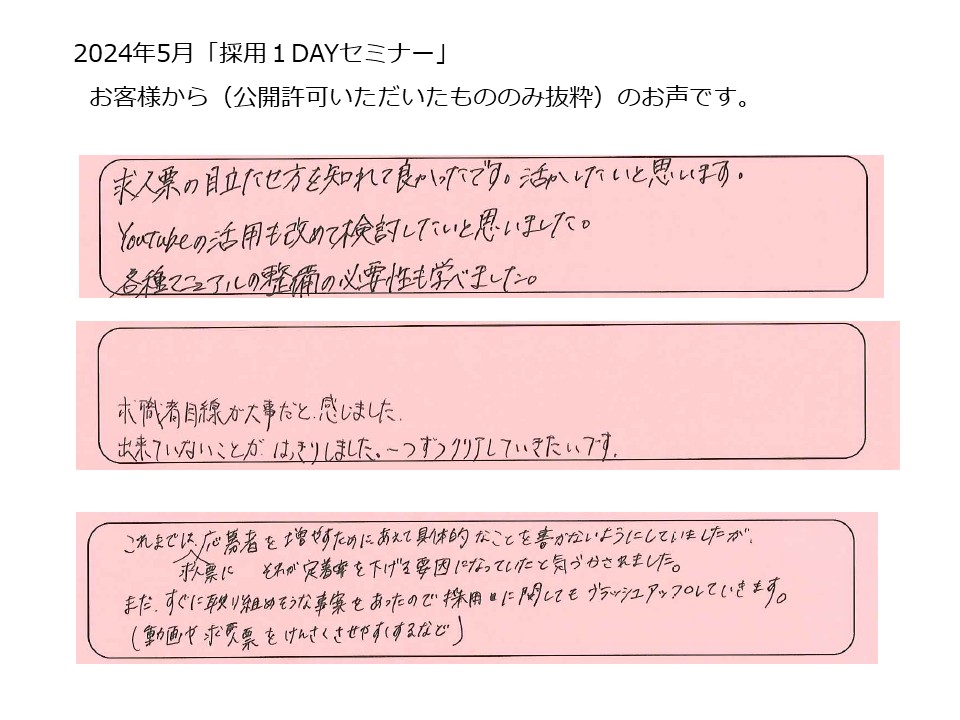 2024年5月「採用１DAYセミナー」
お客様から（公開許可いただいたもののみ抜粋）のお声です。
求人票の目立たせ方を知れて良かったです。活かしたいと思います。
Youtubeの活用も改めて検討したいと思いました。
各種マニュアルの整備の必要性も学べました。
求職者目線が大事だと感じました.
出来ていないことが はっきりしました。一つずつクリアしていきたいです.
これまでは、応募者を増やすためにあえて具体的なことを書かないようにしていましたが、
求人票に それが定着率を下げる要因になっていたと気づかされました。
まだ、すぐに取り組めそうな事案もあったので採用に関してもブラッシュアップしていきます。
(動画や求人票をけんさくさせやすくするなど)